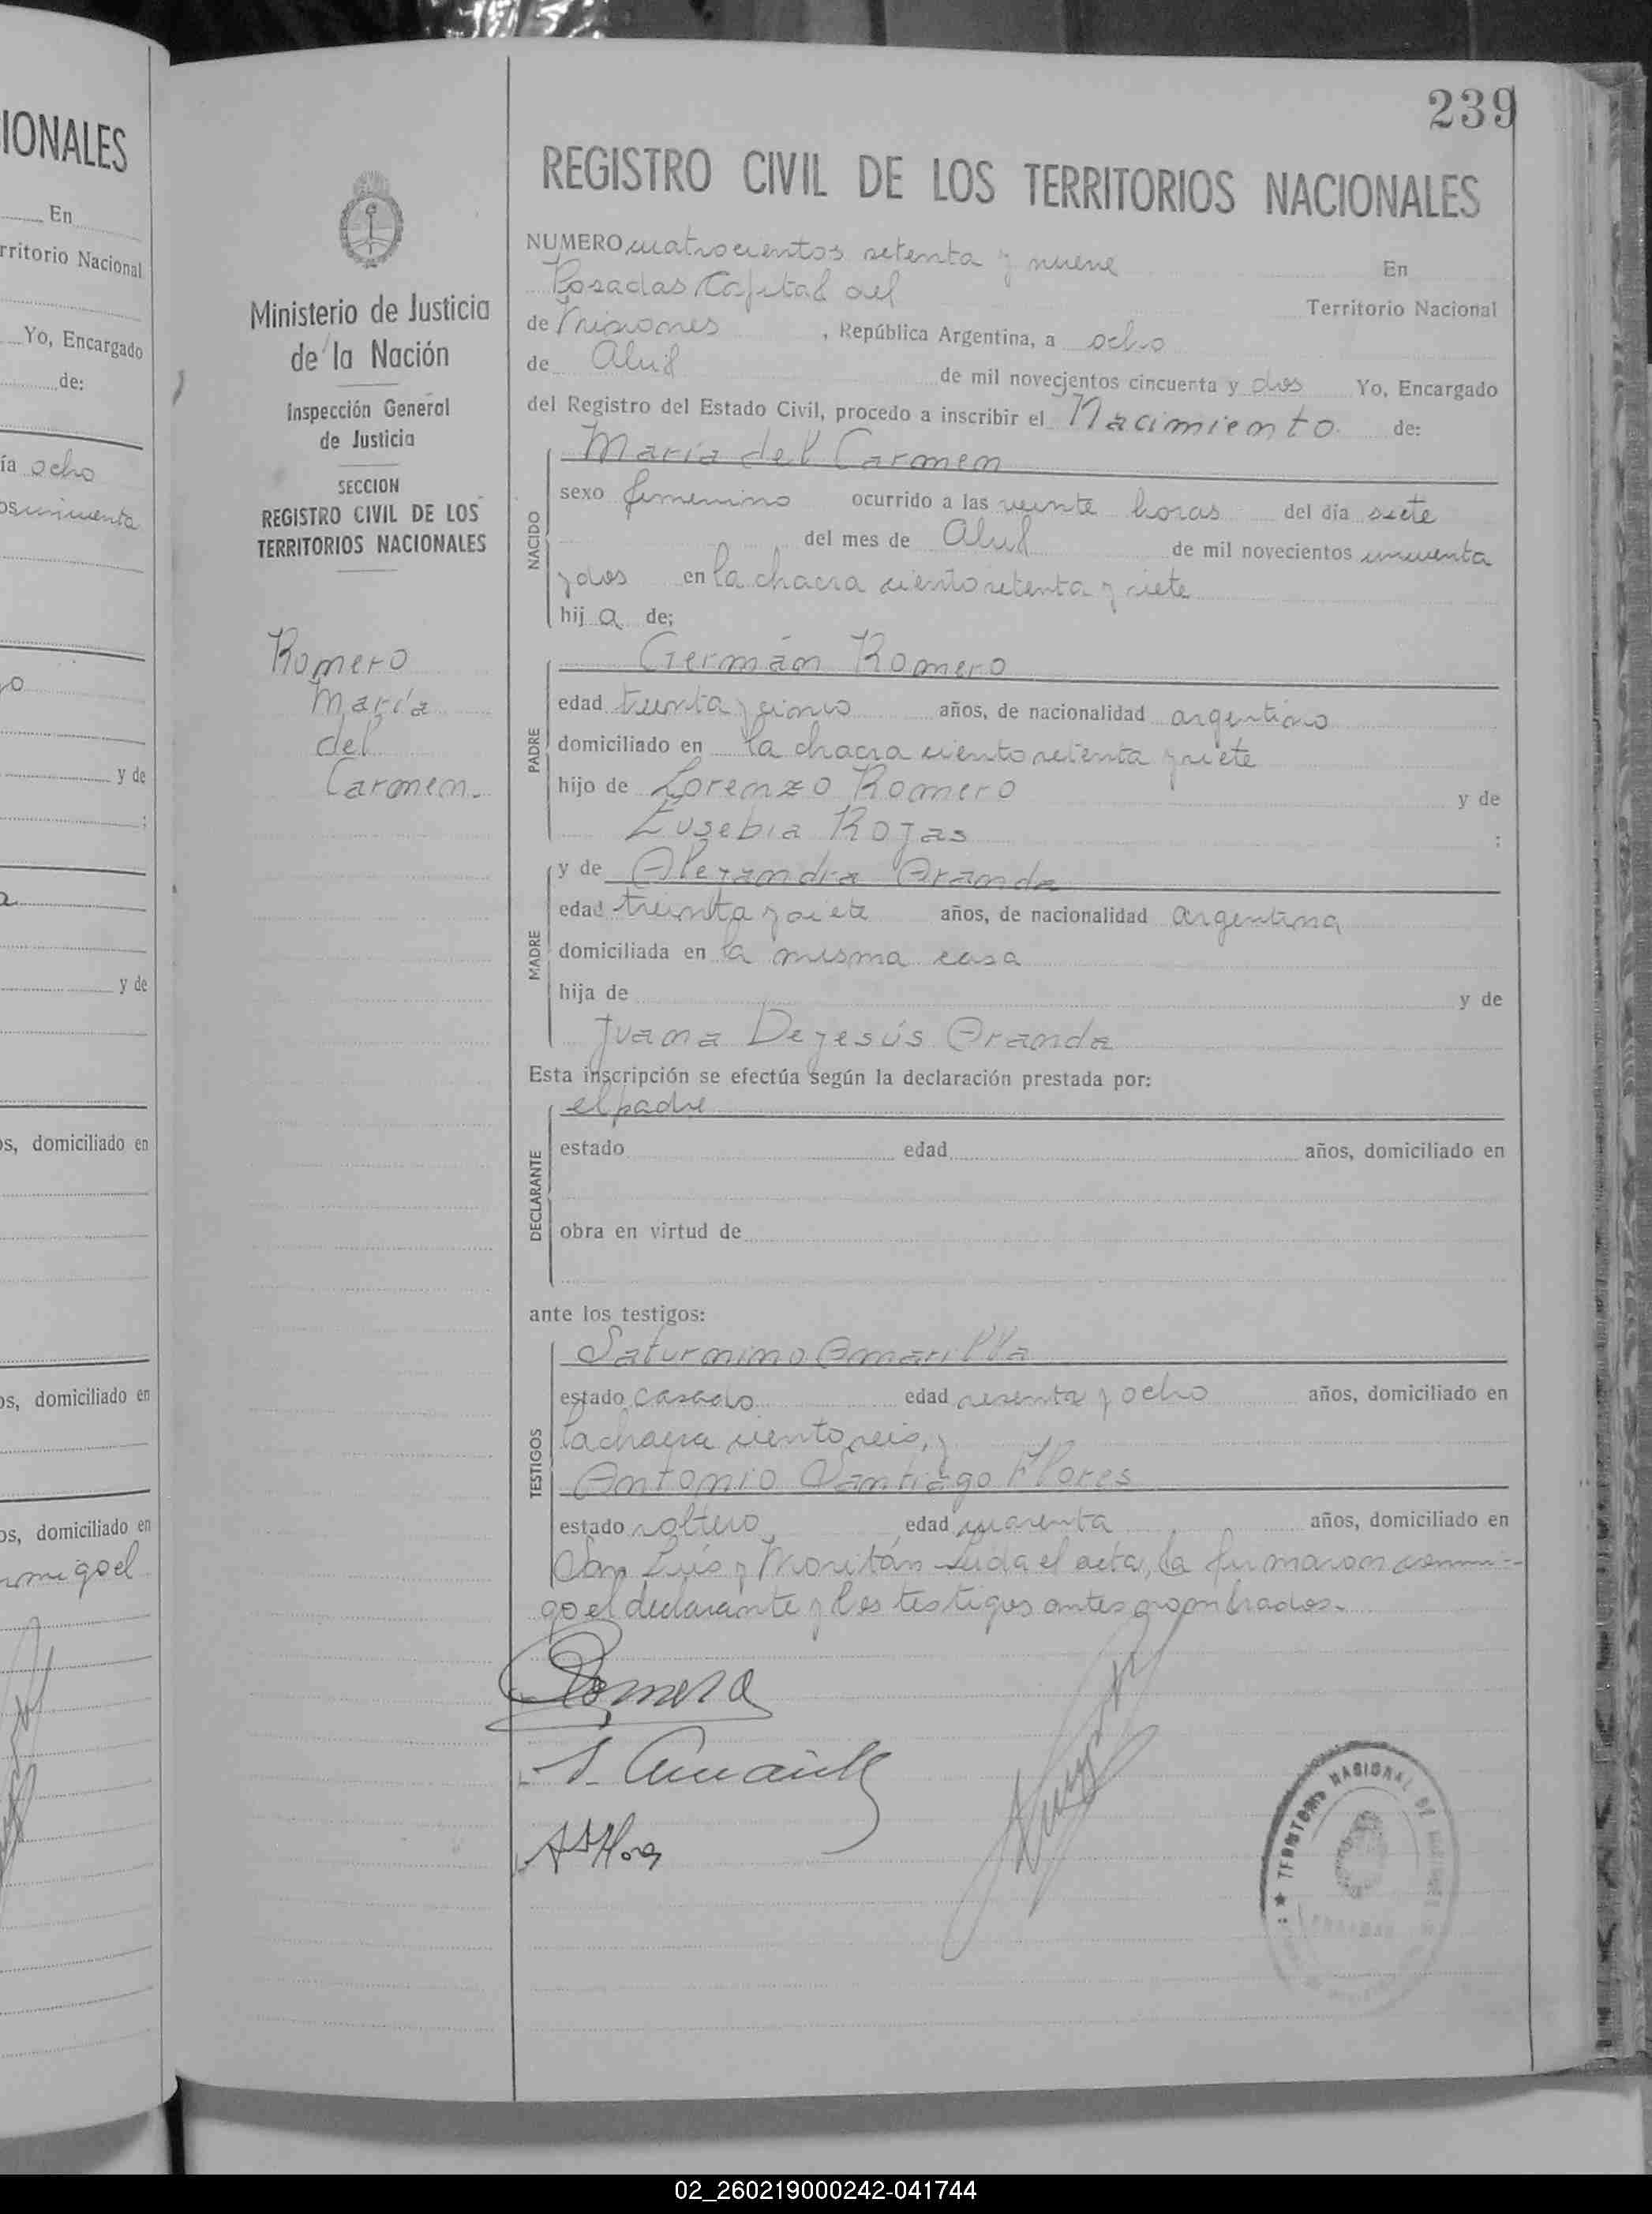 IONALES
En
rritorio Nacional
Yo, Encargado
de:
ía ocho
y de
y de
os, domiciliado en
os, domiciliado en
os, domiciliado en
migo el
Ministerio de Justicia
de la Nación
Inspección General
de Justicia
SECCION
REGISTRO CIVIL DE LOS
TERRITORIOS NACIONALES
Romero
María
del
Carmen.
239
REGISTRO CIVIL DE LOS TERRITORIOS NACIONALES
NUMERO cuatrocientos setenta y nueve En
Posadas Capital del Territorio Nacional
de Misiones , República Argentina, a ocho
de Abril de mil novecientos cincuenta y dos Yo, Encargado
del Registro del Estado Civil, procedo a inscribir el Nacimiento de:
María del Carmen
NACIDO
sexo femenino ocurrido a las veinte horas del día siete
del mes de Abril de mil novecientos cincuenta
y dos en la chacra ciento setenta y siete
hij a de;
Germán Romero
PADRE
edad treinta y cinco años, de nacionalidad argentino
domiciliado en la chacra ciento setenta y siete
hijo de Lorenzo Romero y de
Eusebia Rojas ;
MADRE
y de Alejandra Aranda
edad treinta y siete años, de nacionalidad argentina
domiciliada en la misma casa
hija de y de
Juana Dejesús Aranda
Esta inscripción se efectúa según la declaración prestada por:
DECLARANTE
el padre
estado edad años, domiciliado en
obra en virtud de
ante los testigos:
TESTIGOS
Saturnino Amarilla
estado casado edad sesenta y ocho años, domiciliado en
la chacra ciento seis, y
Antonio Santiago Flores
estado soltero, edad cuarenta años, domiciliado en
San Luis y Moritán Leida el acta, la firmaron conmi-
go el declarante y los testigos antes nombrados.
Romero
S. Amarilla
A S Flores
TERRITORIO NACIONAL DE
02_260219000242-041744